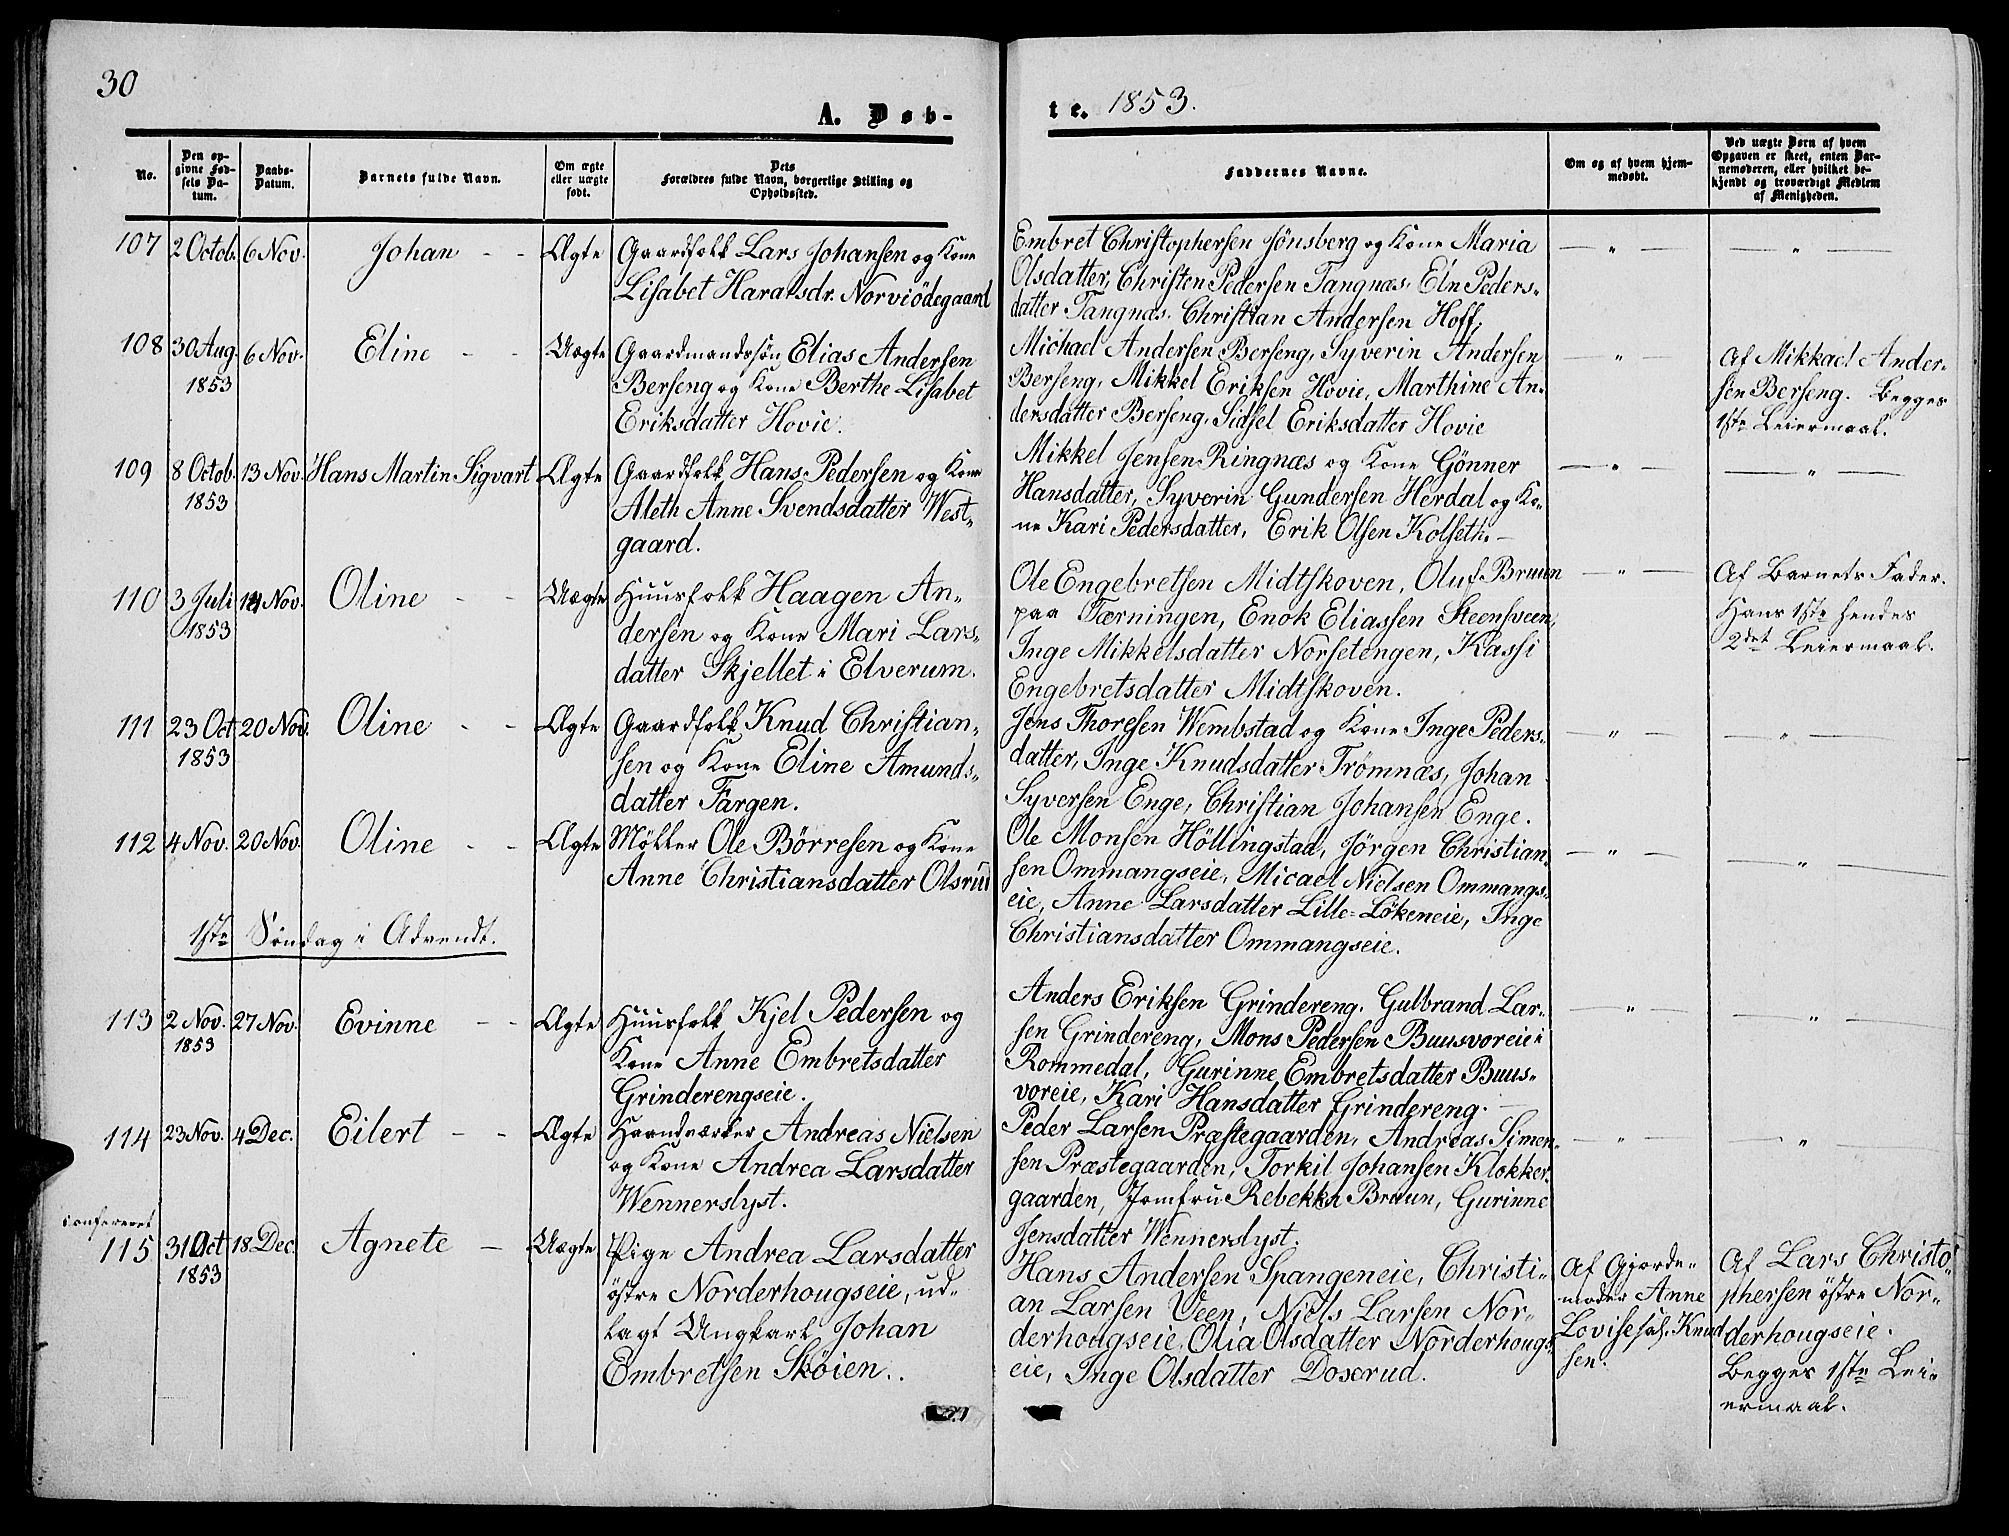 30
A. Døb-
te. 1853.
No.
Den op-
givne Fød-
sels Da-
tum.
Daabs-
Datum.
Barnets fulde Navn.
Om ægte
eller uægte
født.
Dets
Forældres fulde Navn, borgerlige Stilling og
Opholdssted.
Faddernes Navne.
Om og af hvem hjem-
medøbt.
Ved uægte Børn af hvem
Opgaven er skeet, enten Bar-
nemoderen, eller hvilket be-
kjendt og troværdigt Medlem
af Menigheden.
107 2 Octob. 6 Nov. Johan - - Ægte Gaardfolk Lars Johansen og Kone
Lisabet Haralsdr. Norviödegaard
Embret Christophersen Jönsberg og Kone Maria
Olsdatter, Christen Pedersen Tangnæs. Eln Peders-
datter Tangnæs. Christian Andersen Hoff.
108 30 Aug. 6 Nov. Eline - - Uægte Gaardmandssøn Elias Andersen
1853 Berseng og Kone Berthe Lisabet
Eriksdatter Hovie.
Michael Andersen Berseng, Syverin Andersen
Berseng, Mikkel Eriksen Hovie, Marthine An-
dersdatter Berseng, Sidsel Eriksdatter Hovie
Af Mikkael Ander-
sen Berseng. Begges
1ste Leiermaal.
109 8 Octob. 13 Nov. Hans Martin Sigvart Ægte Gaardfolk Hans Pedersen og Kone
1853 Aleth Anne Svendsdatter West-
gaard.
Mikkel Jensen Ringnæs og Kone Gönner
Hansdatter, Syverin Gundersen Herdal og Ko-
ne Kari Pedersdatter, Erik Olsen Kolseth. -
110 3 Juli 14 Nov. Oline - - Uægte Huusfolk Haagen An-
1853 dersen og Kone Mari Lars-
datter Skjellet i Elverum.
Ole Engebretsen Midtskoven, Oluf Bruun
paa Tærningen, Enok Eliassen Steensveen,
Inge Mikkelsdatter Norsetengen, Kassi
Engebretsdatter Midtskoven.
Af Barnets Fader.
Hans 1ste hendes
2det Leiermaal.
111 23 Oct. 20 Nov. Oline - - Ægte Gaardfolk Knud Christian-
1853 sen og Kone Eline Amunds-
datter Fargen.
Jens Thoresen Wembstad og Kone Inge Peders-
datter, Inge Knudsdatter Trömnæs, Johan
Syversen Enge, Christian Johansen Enge.
112 4 Nov. 20 Nov. Oline - - Ægte Møller Ole Börresen og Kone
Anne Christiansdatter Olsrud
Ole Monsen Höllingstad, Jörgen Christian-
sen Ommangseie, Micael Nielsen Ommangs-
eie, Anne Larsdatter Lille-Lökeneie, Inge
Christiansdatter Ommangseie.
1ste Søndag i Advendt.
113 2 Nov. 27 Nov. Evinne - - Ægte Huusfolk Kjel Pedersen og
1853 Kone Anne Embretsdatter
Grinderengseie.
Anders Eriksen Grindereng. Gulbrand Lar-
sen Grindereng, Mons Pedersen Buusvoreie i
Rommedal, Gurinne Embretsdatter Buus-
voreie, Kari Hansdatter Grindereng.
114 23 Nov. 4 Dec. Eilert - - Ægte Haandværker Andreas Nielsen
og Kone Andrea Larsdatter
Wennerslyst.
Peder Larsen Præstegaarden, Andreas Simen-
sen Præstegaarden, Torkil Johansen Klokker-
gaarden, Jomfru Rebekka Bruun, Gurinne
Jensdatter Wennerslyst.
confereret
115 31 Oct 18 Dec. Agnete - Uægte Pige Andrea Larsdatter
1853 östre Norderhougseie, ud-
lagt Ungkarl Johan
Embretsen Sköien.
Hans Andersen Spangeneie, Christi-
an Larsen Veen, Niels Larsen Nor-
derhougseie, Olia Olsdatter Norderhougs-
eie, Inge Olsdatter Doxrud.
Af Gjorde-
moder Anne
Lovise sal. Knud
sen.
Af Lars Christo-
phersen östre Nor-
derhougseie.
Begges 1ste Lei-
ermaal.